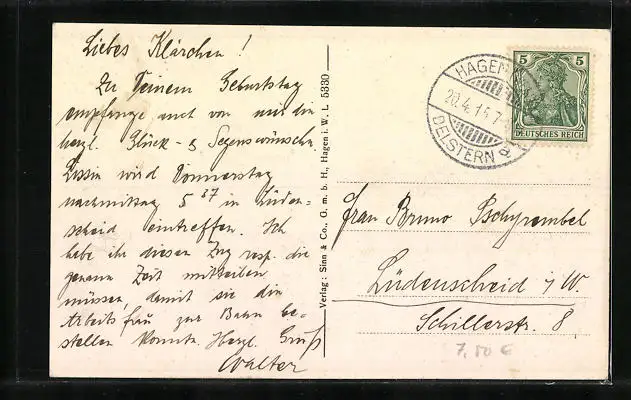 Liebes Klärchen!
Zu Deinem Geburtstag
empfange auch von mir die
herzl. Glück- & Segenswünsche.
wird Donnerstag
nachmittag 5 37 in Lüden-
scheid eintreffen. Ich
habe ihr diesen Zug resp. die
genaue Zeit mitteilen
müssen, damit sie die
Arbeitsfrau zur Bahn be-
stellen konnte. Herzl. Gruß
Walter
Verlag: Sinn & Co., G. m. b. H., Hagen i. W. L 5330
HAGEN
20.4.15 7-
DELSTERN a
5 5
DEUTSCHES REICH
Frau Bruno Pschyrembel
Lüdenscheid i/W.
Schillerstr. 8
7,50 €